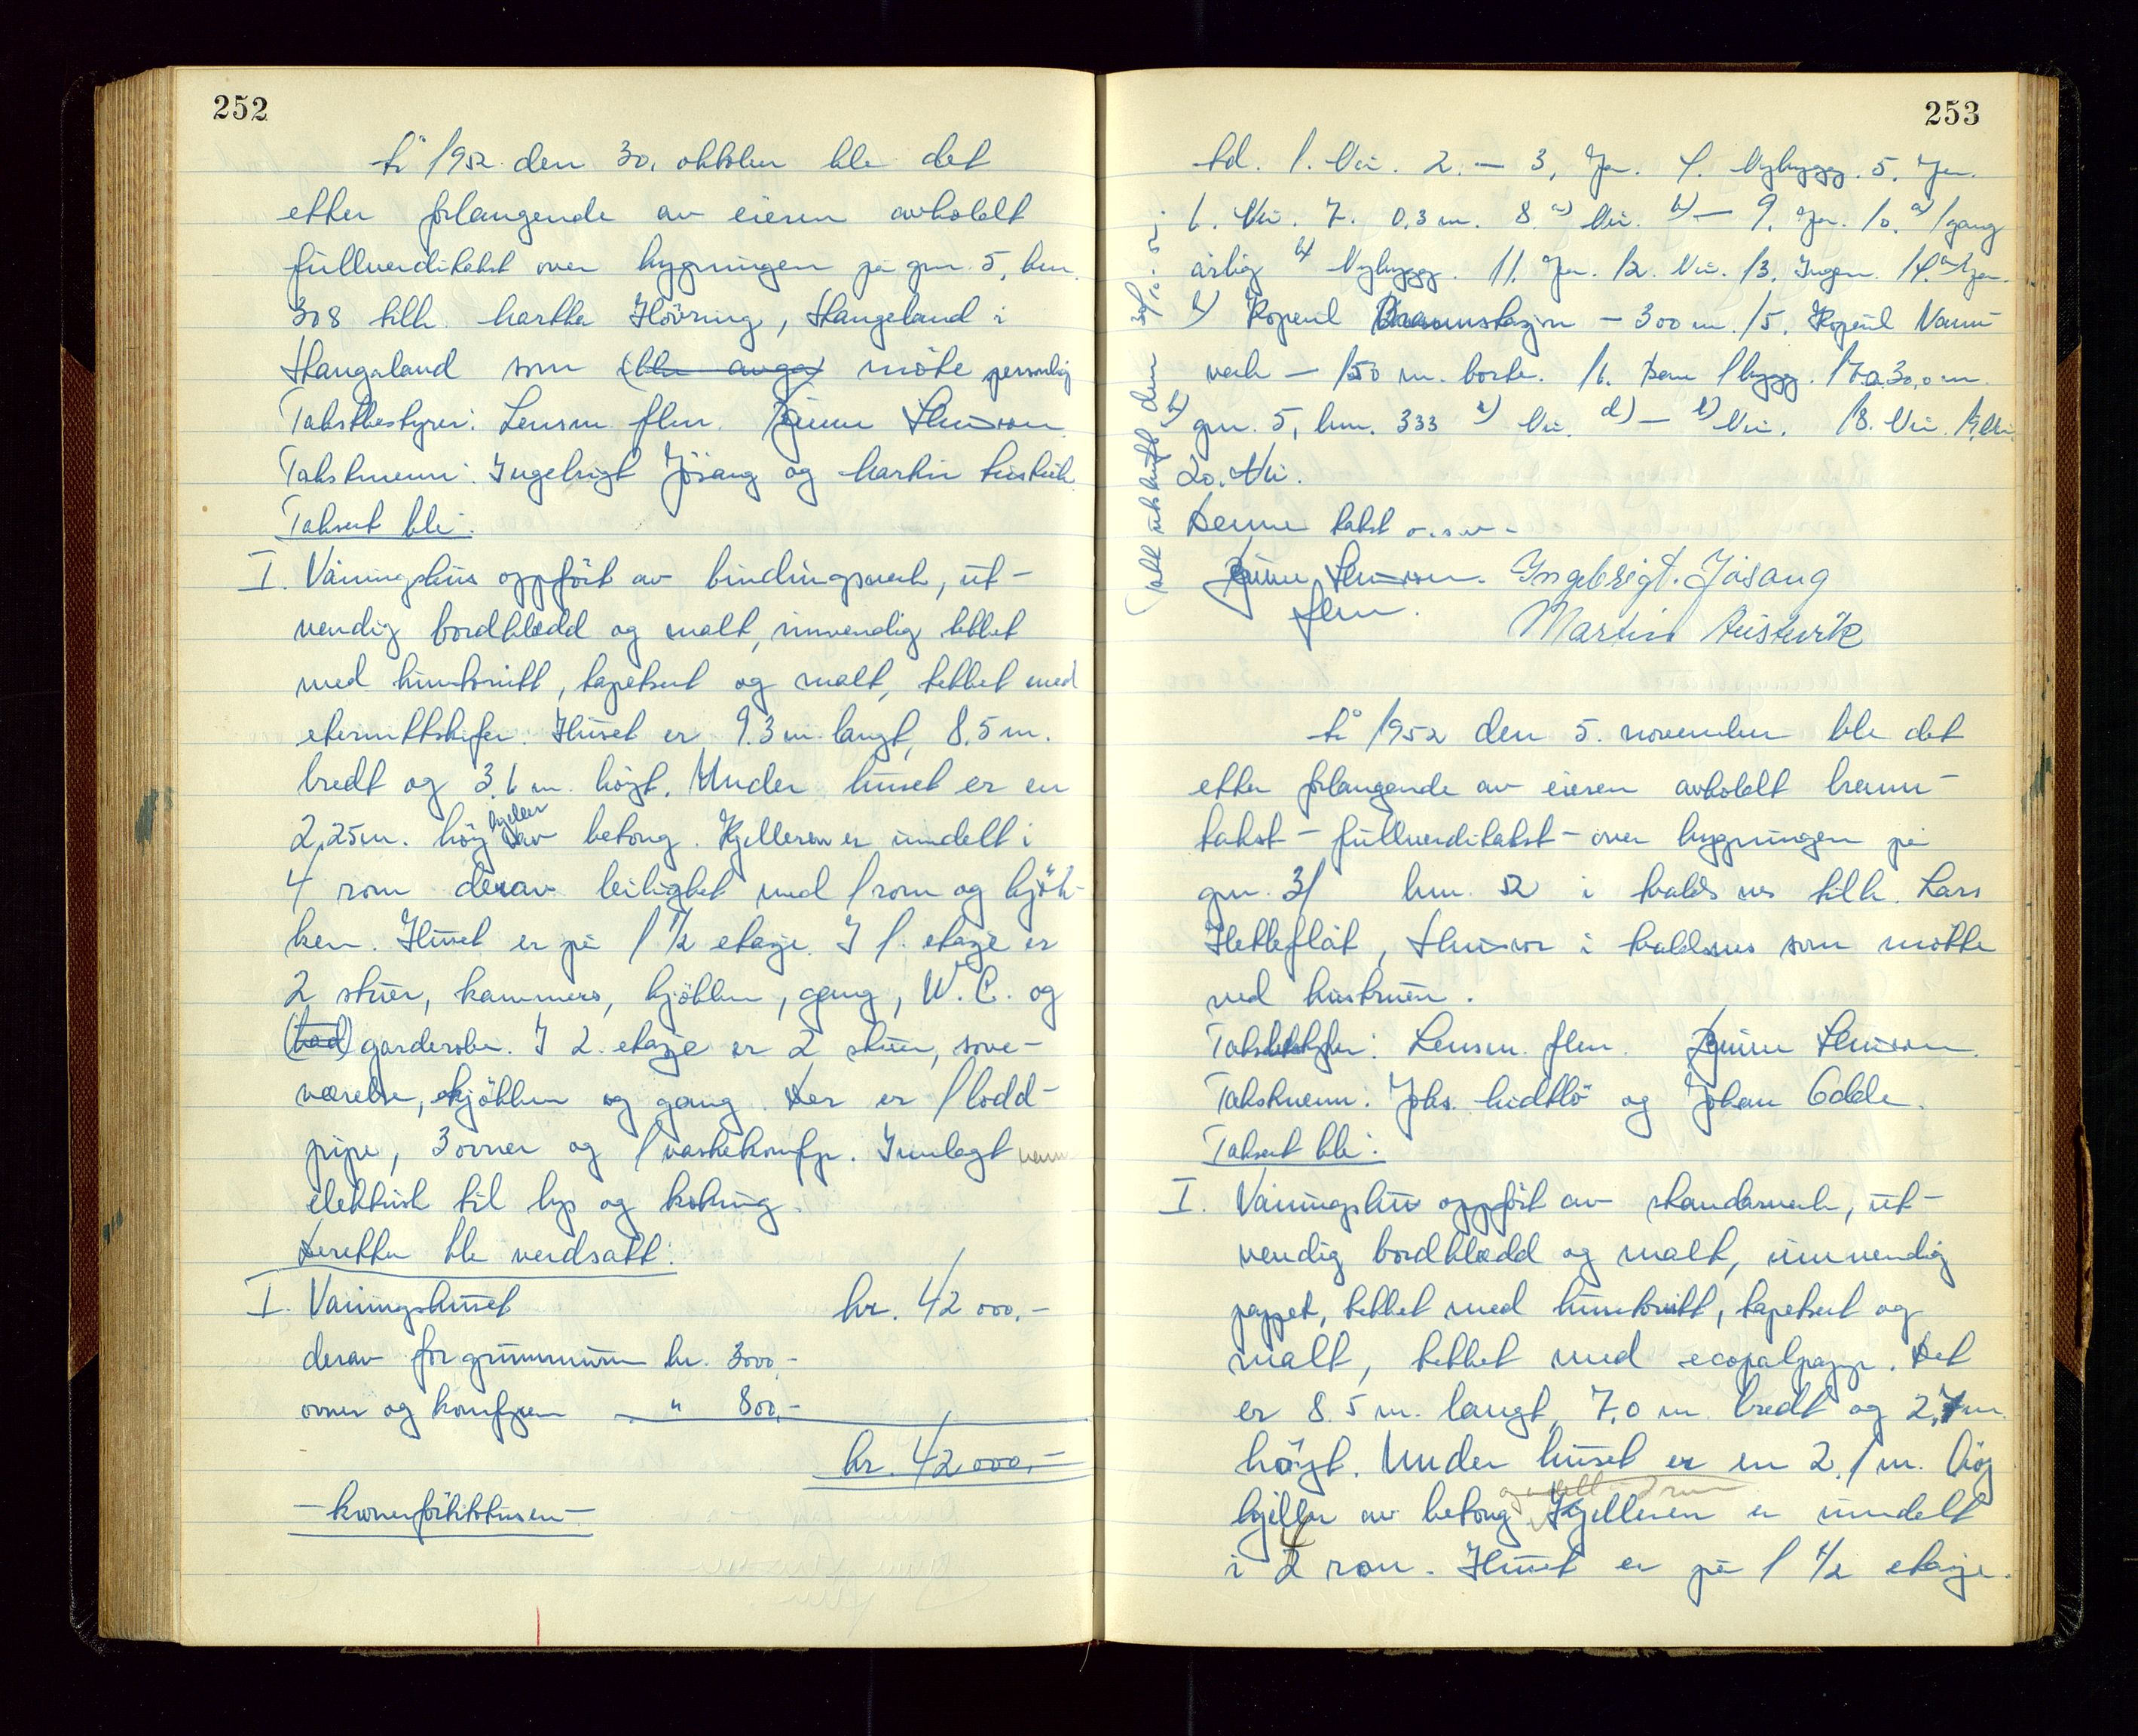 252
År 1952 den 30. oktober ble det
etter forlangende av eieren avholdt
fullverditakst over bygningen på gnr. 5, bnr.
308 tilh. Martha Hövring, Stangeland i
Stangaland som (ble avga) møte personlig
Takstbestyrer: Lensm. flm.
Takstmenn: Ingebrigt Jösang og Martin Austvik.
Taksert ble:
I. Våningshus oppfört av bindingsverk, ut-
vendig bordkledd og malt, innvendig tekket
med huntonitt, tapetsert og malt, tekket med
eternittskifer. Huset er 9.3 m langt, 8.5 m.
bredt og 3.6 m. høgt. Under huset er en
2,25 m. høg kjeller av betong. Kjelleren er inndelt i
4 rom derav leilighet med 1 rom og kjök-
ken. Huset er på 1 1/2 etasje. I 1. etasje er
2 stuer, kammers, kjökken, gang, W.C. og
(bad) garderobe. I 2. etasje er 2 stuer, sove-
værelse, kjökken og gang. Der er 1 lodd-
pipe, 3 ovner og 1 vaskekomfyr. Innlagt vann
elektrisk til lys og koking.
Deretter ble verdsatt:
I. Våningshuset kr. 42 000,-
derav for grunnmuren kr. 3000,-
ovner og komfyren " 800,-
kr. 42 000,-
253
td. 1. Nei. 2. — 3. Ja. 4. Nybygg. 5. Ja.
6. Nei. 7. 0.3 m. 8. a) Nei. b) — 9. Ja. 10. a) 1 gang
årlig b) Nybygg. 11. Ja. 12. Nei. 13. Ingen. 14. a) Ja.
b) Kopervik Brannstasjon — 300 m. 15. Kopervik Vann-
verk — 150 m. borte. 16. Bare 1 bygg. 17. a. 30,0 m.
b) gnr. 5, bnr. 333 c) Nei. d) — e) Nei. 18. Nei. 19. Nei.
20. Nei.
Denne takst o.s.v.-
Ingebrigt. Jösang
flm. Martin Austvik
Takst utskrift den 30/10.52.
År 1952 den 5. november ble det
etter forlangende av eieren avholdt brann-
takst - fullverditakst - over bygningen på
gnr. 31 bnr. 52 i Avaldsnes tilh. Lars
Hetteflåt, i Avaldsnes som møtte
ved hustruen.
Takstbestyrer: Lensm. flm.
Takstmenn: Johs. Midtbö og Johan Odde.
Taksert ble:
I. Våningshus oppfört av standerverk, ut-
vendig bordkledd og malt, innvendig
pappet, tekket med huntonitt, tapetsert og
malt, tekket med ecopalpapp. Det
er 8.5 m. langt, 7,0 m. bredt og 2,7 m.
högt. Under huset er en 2.1 m. hög
kjeller av betong. Kjelleren er inndelt
i 4 rom. Huset er på 1 1/2 etasje.